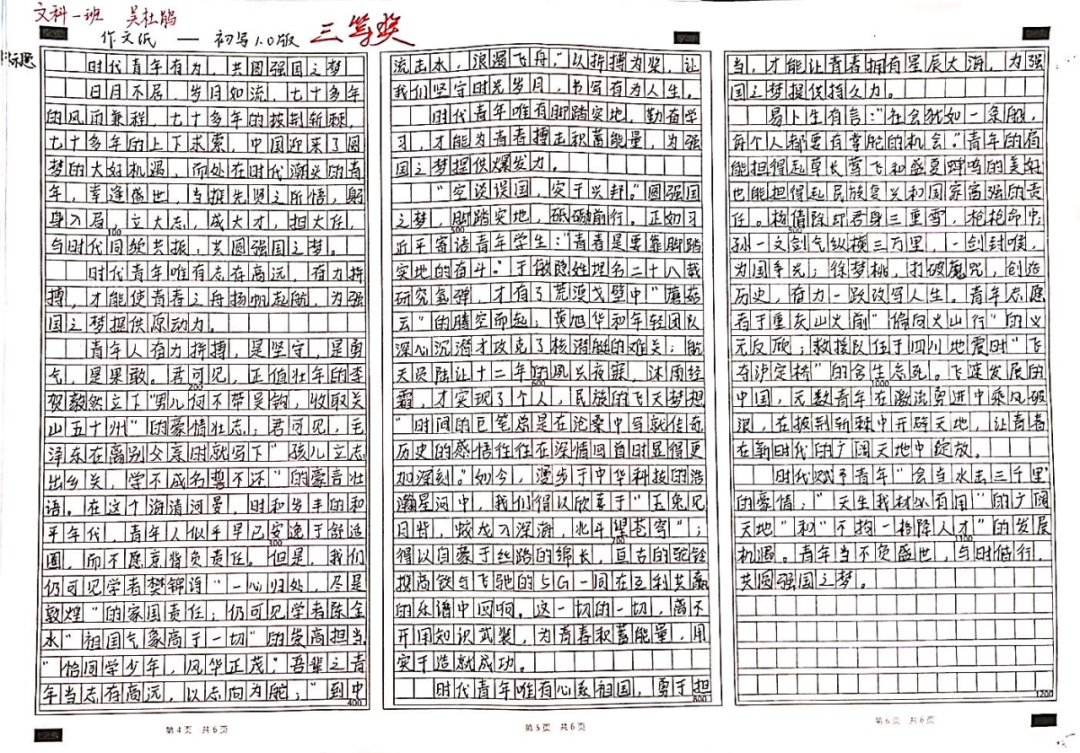 文科一班 吴杜鹃
作文纸 — 初写1.0版 三等奖
标题
时代青年有为，共圆强国之梦
日月不居，岁月如流，七十多年
的风雨兼程，七十多年的披荆斩棘，
七十多年的上下求索，中国迎来了圆
梦的大好机遇，而处在时代潮头的青
年，幸逢盛世，当推先贤之所悟，躬
身入局，立大志，成大才，担大任，
100
与时代同频共振，共圆强国之梦。
时代青年唯有志存高远，奋力拼
搏，才能使青春之舟扬帆起航，为强
国之梦提供原动力。
青年人奋力拼搏，是坚守，是勇
气，是果敢。君可见，正值壮年的李
200
贺毅然立下"男儿何不带吴钩，收取关
山五十州"的豪情壮志；君可见，毛
泽东在离别父亲时就写下"孩儿立志
出乡关，学不成名誓不还"的豪言壮
语。在这个海清河晏，时和岁丰的和
平年代，青年人似乎早已安逸于舒适
300
圈，而不愿意背负责任。但是，我们
仍可见学者樊锦诗"一心归处，尽是
敦煌"的家国责任；仍可见学者陈全
水"祖国气象高于一切"的崇高担当
"恰同学少年，风华正茂"吾辈之青
年当志存高远，以志向为舵；"到中
400
第4页 共6页
流击水，浪遏飞舟"以拼搏为桨，让
我们坚守时光岁月，书写有为人生。
时代青年唯有脚踏实地，勤奋学
习，才能为青春搏击积蓄能量，为强
国之梦提供爆发力。
"空谈误国，实干兴邦。"圆强国
之梦，脚踏实地，砥砺前行。正如习
500
近平寄语青年学生："青春是要靠脚踏
实地的奋斗。"于敏隐姓埋名二十八载
研究氢弹，才有了荒漠戈壁中"蘑菇
云"的腾空而起；黄旭华和年轻团队
深心沉潜才攻克了核潜艇的难关；航
天员陆让十二年的夙兴夜寐，沐雨经
600
霜，才实现了个人，民族的飞天梦想
"时间的巨笔总是在沧桑中写就传奇
历史的感悟往往在深情回首时显得更
加深刻。"如今，漫步于中华科技的浩
瀚星河中，我们得以欣喜于"玉兔见
月背，蛟龙入深海，北斗望苍穹"；
700
得以自豪于丝路的绵长，亘古的驼铃
携高铁与飞驰的5G一同在互利共赢
的乐谱中回响。这一切的一切，离不
开用知识武装，为青春积蓄能量，用
实干造就成功。
时代青年唯有心系祖国，勇于担
800
第5页 共6页
当，才能让青春拥有星辰大海，为强
国之梦提供持久力。
易卜生有言："社会犹如一条船，
每个人都要有掌舵的机会。"青年的肩
能担得起草长莺飞和盛夏蝉鸣的美好
也能担得起民族复兴和国家富强的责
任。杨倩除却君身三重雪，枪枪命中；
900
孙一文剑气纵横三万里，一剑封喉，
为国争光；徐梦桃，打破魔咒，创造
历史，奋力一跃改写人生。青年志愿
者于重庆山火前"偏向火山行"的义
无反顾；救援队伍于四川地震时"飞
夺泸定桥"的舍生忘死。飞速发展的
1000
中国，无数青年在激流勇进中乘风破
浪，在披荆斩棘中开辟天地，让青春
在新时代的广阔天地中绽放。
时代赋予青年"会当水击三千里"
的豪情；"天生我材必有用"的广阔
天地"和"不拘一格降人才"的发展
1100
机遇。青年当不负盛世，与时偕行，
共圆强国之梦。
1200
第6页 共6页